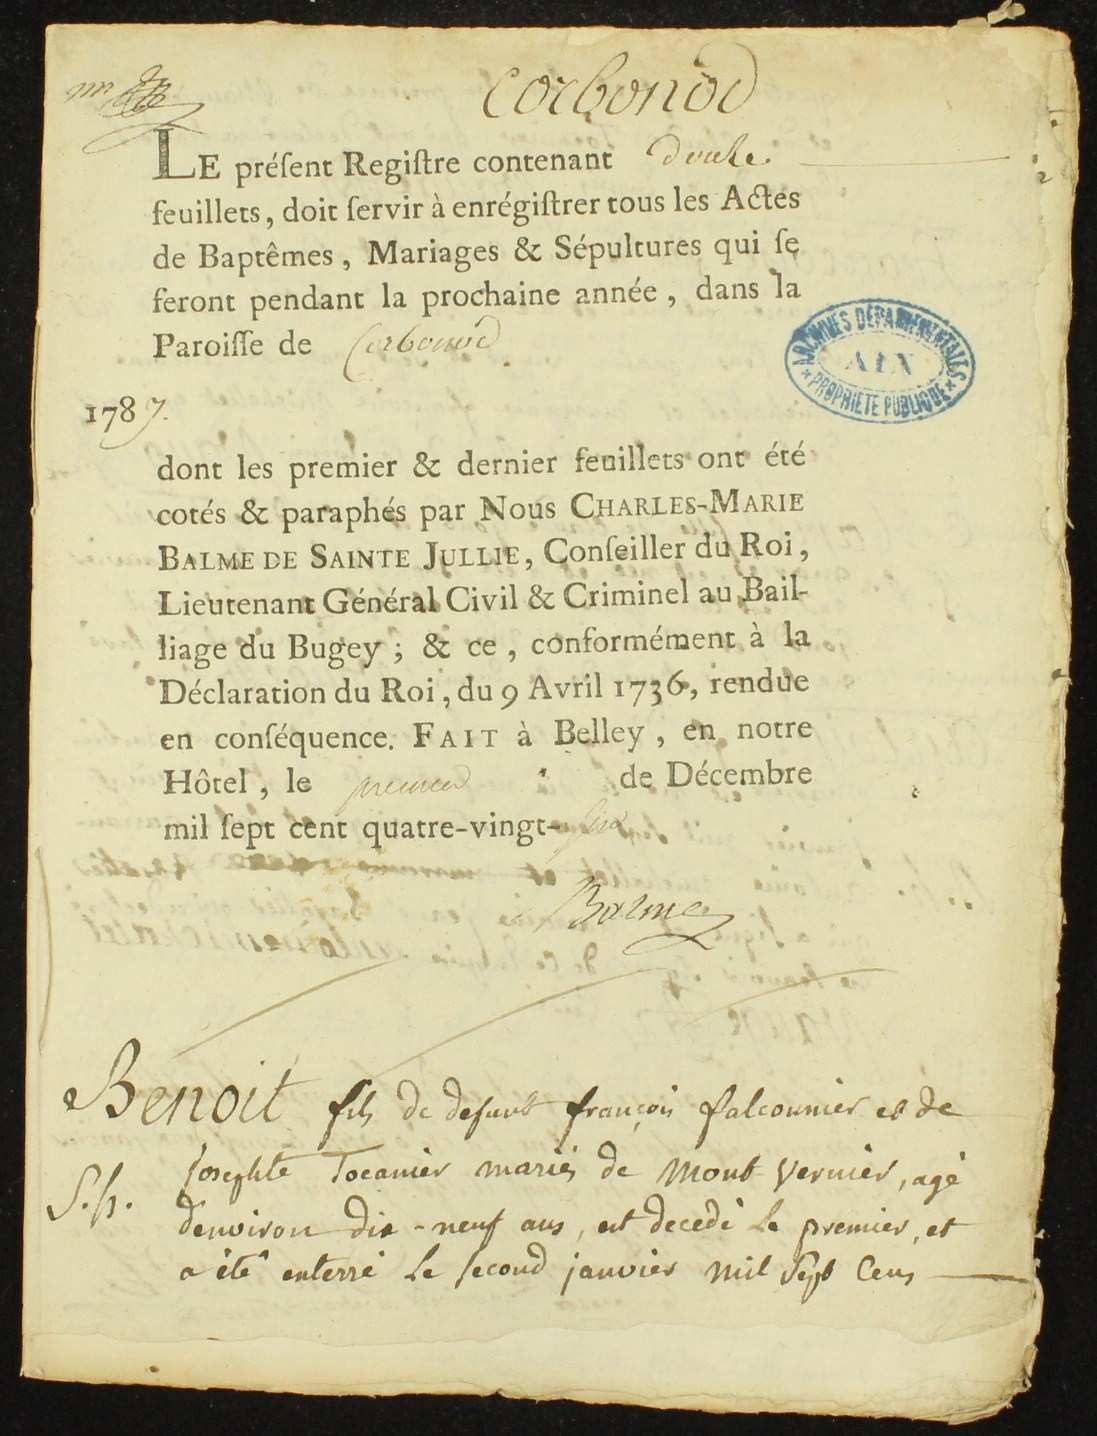 Corbonod
LE préſent Regiſtre contenant douze.
feuillets, doit ſervir à enrégiſtrer tous les Actes
de Baptêmes, Mariages & Sépultures qui ſe
feront pendant la prochaine année, dans la
Paroiſſe de Corbonod
1787.
ARCHIVES DÉPARTEMENTALES
AIN
PROPRIÉTÉ PUBLIQUE
dont les premier & dernier feuillets ont été
cotés & paraphés par Nous CHARLES-MARIE
BALME DE SAINTE JULLIE, Conſeiller du Roi,
Lieutenant Général Civil & Criminel au Bail-
liage du Bugey; & ce, conformément à la
Déclaration du Roi, du 9 Avril 1736, rendue
en conſéquence. FAIT à Belley, en notre
Hôtel, le premier de Décembre
mil ſept cent quatre-vingt-six
Balme
Benoit fils de defunt françois falconnier et de
Josephte Tocanier mariés de Mont-Vernier, agé
S.h.
d'environ dix-neuf ans, est decedé le premier, et
a été enterré le second janvier mil Sept Cens